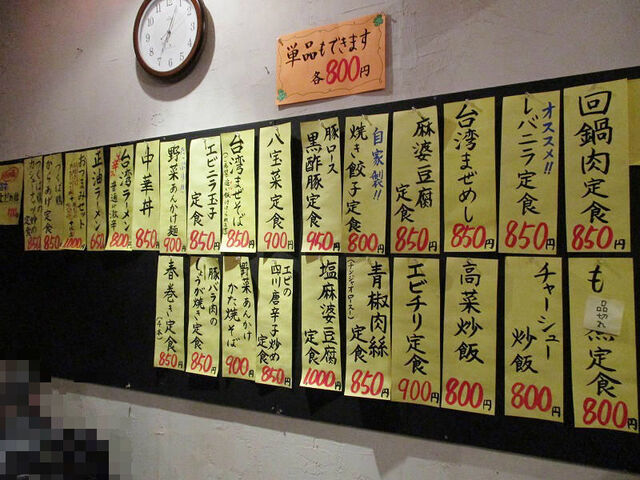 単品もできます
各800円
回鍋肉定食
850円
オススメ!!
レバニラ定食
850円
台湾まぜめし
850円
麻婆豆腐
定食
850円
自家製!!
焼き餃子定食
800円
豚ロース
黒酢豚定食
950円
八宝菜定食
900円
台湾まぜそば
850円
エビニラ玉子
定食
850円
野菜あんかけ麺
900円
中華丼
850円
台湾ラーメン
800円
正油ラーメン
650円
おつまみセット
1000円
からあげ定食
850円
850円
も
品切れ
定食
800円
チャーシュー
炒飯
800円
高菜炒飯
800円
エビチリ定食
900円
青椒肉絲
(チンジャオロースー)
定食
850円
塩麻婆豆腐
定食
1000円
エビの
四川唐辛子炒め
定食
850円
野菜あんかけ
かた焼そば
900円
豚バラ肉の
しょうが焼き定食
850円
春巻き定食
(4本)
850円